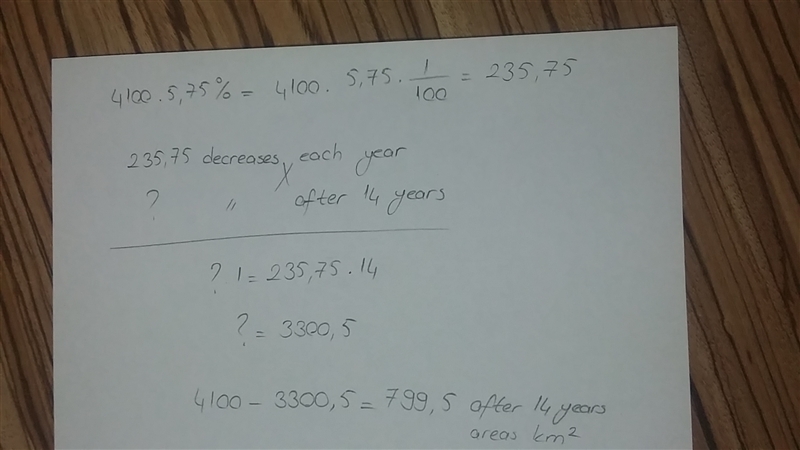 4100 . 5,75% = 4100 . 5,75 . 1/100 = 235,75
235,75 decreases each year
? " after 14 years
? 1 = 235,75 . 14
? = 3300,5
4100 - 3300,5 = 799,5 after 14 years
areas km²